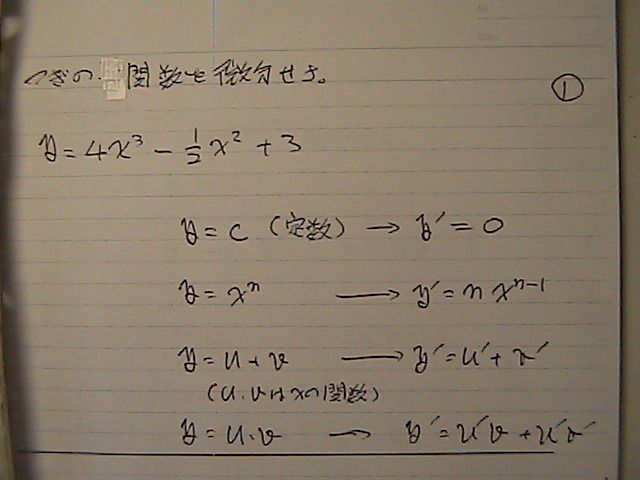 つぎの 関数を微分せよ。
①
y = 4x³ - 1/2 x² + 3
y = c (定数) → y′ = 0
y = xⁿ → y′ = n xⁿ⁻¹
y = u + v → y′ = u′ + v′
(u.vはxの関数)
y = u.v → y′ = u′v + u′v′